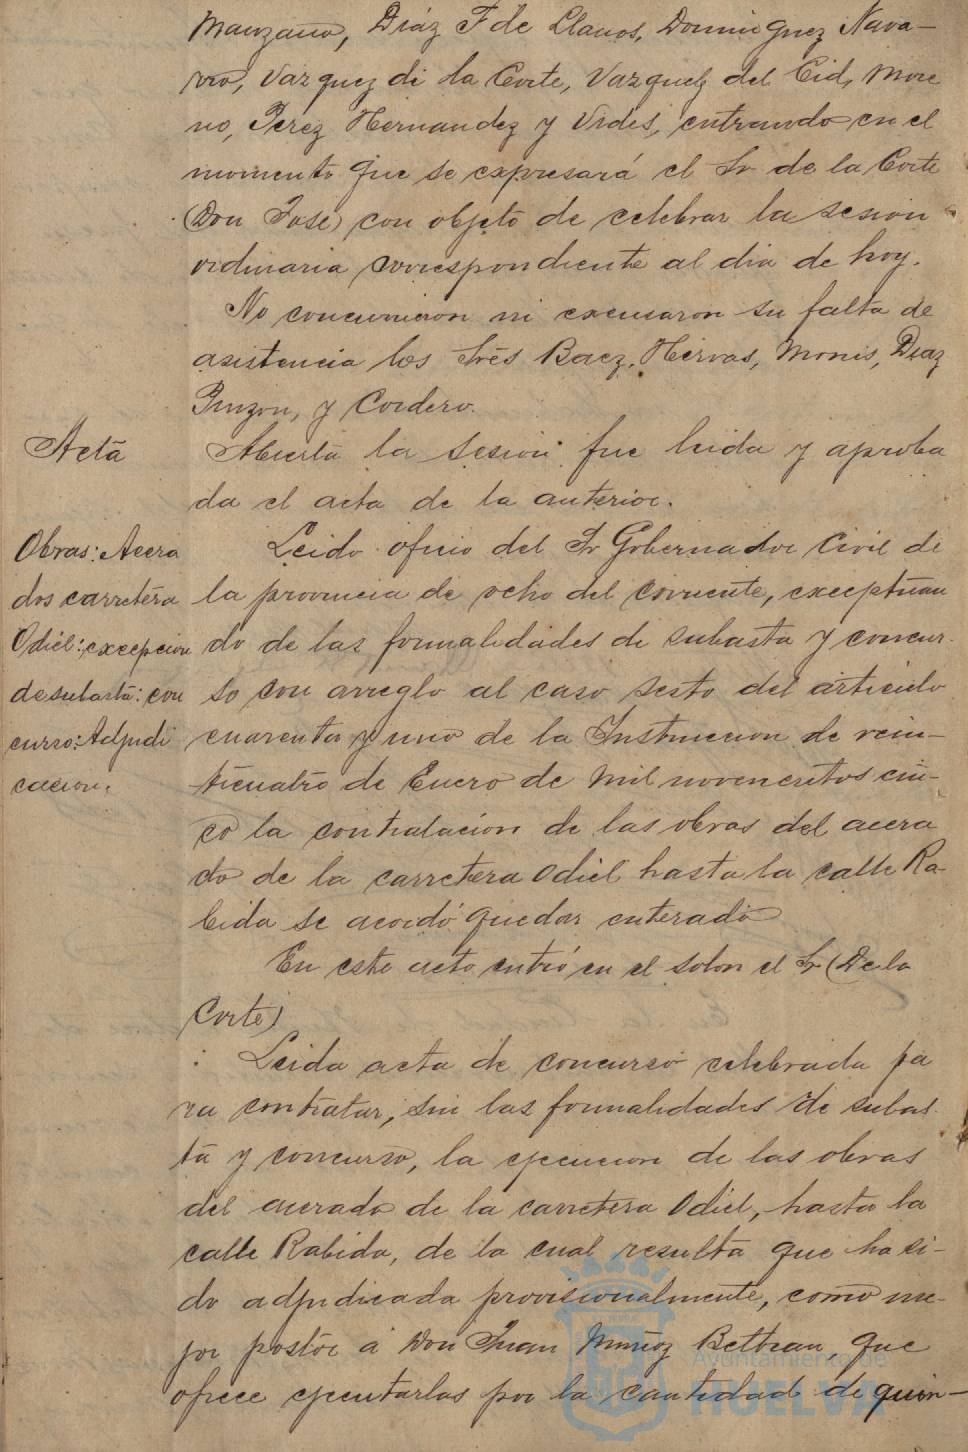 Manzano, Diáz F de Llanos, Dominguez Nava-
rro, Vazquez di la Corte, Vazquez del Cid, More
no, Perez Hernandez y Vides, entrando en el
momento que se expresará el Sr de la Corte
(Don José) con objeto de celebrar la sesion
ordinaria correspondiente al dia de hoy.
No concurrieron ni excusaron su falta de
asistencia los Srés Baez, Hervas, Monis, Diaz
Pinzon, y Cordero.
Acta
Abierta la sesion fue leida y aproba
da el acta de la anterior.
Obras: Acera
dos carretera
Odiel: excepcion
de subasta: con
curso: Adjudi
cacion.
Leido oficio del Sr Gobernador Civil de
la provincia de ocho del corriente, exceptuan
do de las formalidades de subasta y concur-
so con arreglo al caso sesto del articulo
cuarenta y uno de la Instruccion de vein-
ticuatro de Enero de mil novencentos cin-
co la contratacion de las obras del acera
do de la carretera Odiel hasta la calle Ra-
bida se acordó quedar enterado
En este acto entró en el salon el Sr (De la
Corte)
Leida acta de concurso celebrada pa
ra contratar, sin las formalidades de subas-
ta y concurso, la ejecucion de las obras
del acerado de la carretera Odiel, hasta la
calle Rabida, de la cual resulta que ha si-
do adjudicada provisionalmente, como me-
jor postor á Don Juan Muñoz Beltran, que
ofrece ejecutarlas por la cantidad de quin-
Ayuntamiento de
HUELVA